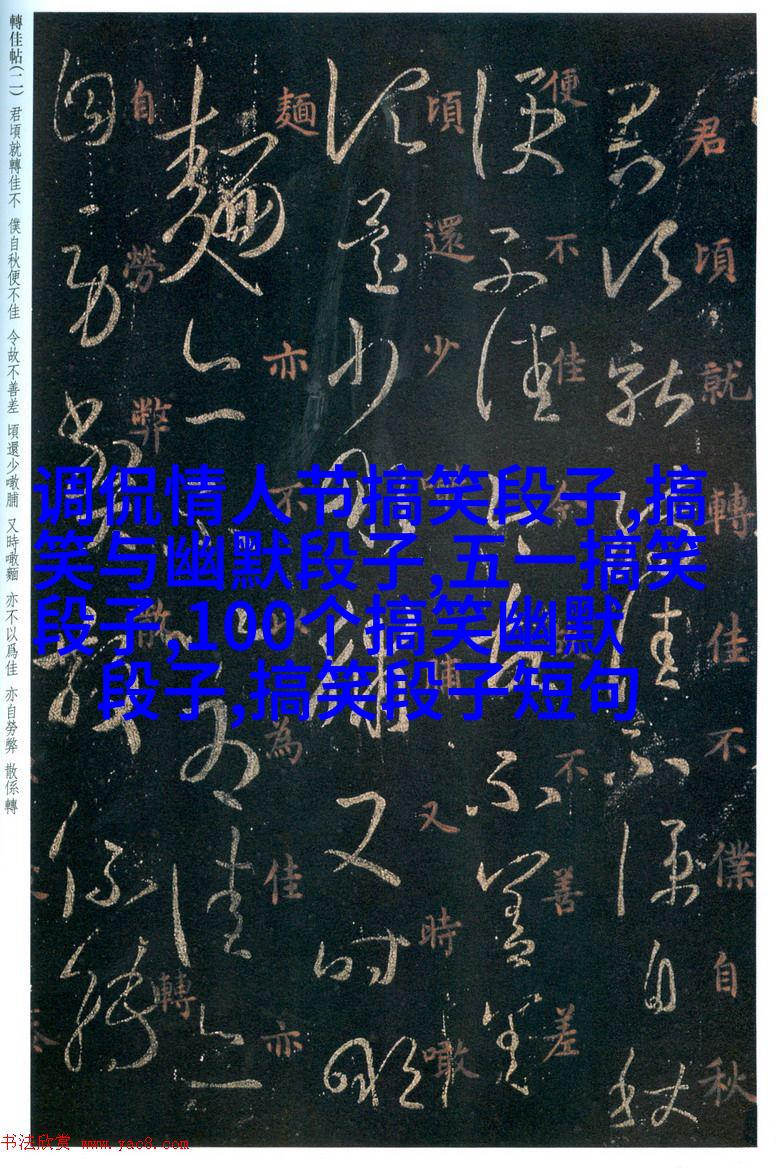 轉佳帖(二) 君頃就轉佳不 僕自秋便不佳 令故不善差 頃還少噉脯 又時噉麵 亦不以爲佳 亦自勞弊 散係轉
君頃就轉佳不僕自秋
便不佳令故不善差
頃還少噉脯又時噉
麵亦不以為佳亦
自勞弊散係轉
调侃情人节搞笑段子,搞
笑与幽默段子,五一搞笑
段子,100个搞笑幽默
段子,搞笑段子短句
书法欣赏 www.yac8.com